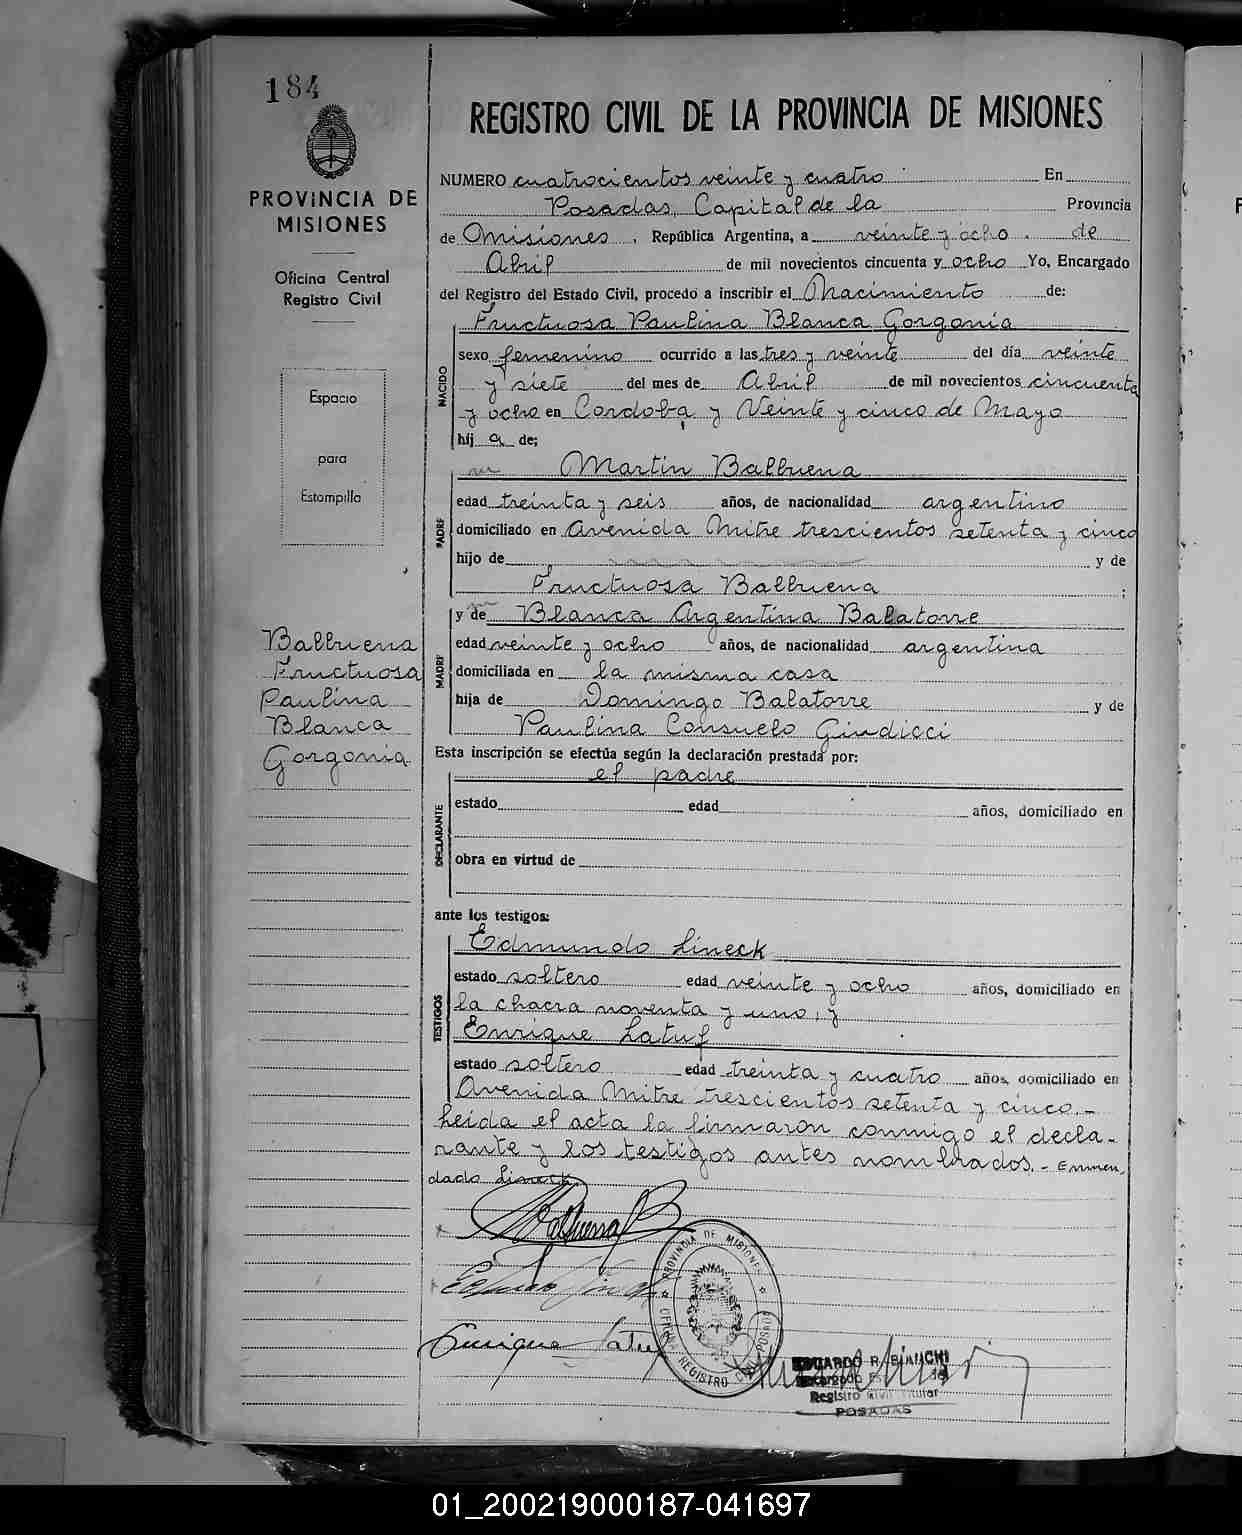 184
PROVINCIA DE
MISIONES
Oficina Central
Registro Civil
Espacio
para
Estampilla
Balbuena
Fructuosa
Paulina
Blanca
Gorgonia
REGISTRO CIVIL DE LA PROVINCIA DE MISIONES
NUMERO cuatrocientos veinte y cuatro En
Posadas, Capital de la Provincia
de Misiones, República Argentina, a veinte y ocho de
Abril de mil novecientos cincuenta y ocho Yo, Encargado
del Registro del Estado Civil, procedo a inscribir el Nacimiento de:
NACIDO
Fructuosa Paulina Blanca Gorgonia
sexo femenino ocurrido a las tres y veinte del día veinte
y siete del mes de Abril de mil novecientos cincuenta
y ocho en Cordoba y Veinte y cinco de Mayo
hij a de;
PADRE
Martin Balbuena
edad treinta y seis años, de nacionalidad argentino
domiciliado en Avenida Mitre trescientos setenta y cinco
hijo de y de
Fructuosa Balbuena ;
MADRE
y de Blanca Argentina Balatorre
edad veinte y ocho años, de nacionalidad argentina
domiciliada en la misma casa
hija de Domingo Balatorre y de
Paulina Consuelo Giudicci
Esta inscripción se efectúa según la declaración prestada por:
DECLARANTE
el padre
estado edad años, domiciliado en
obra en virtud de
ante los testigos:
TESTIGOS
Edmundo Lineck
estado soltero edad veinte y ocho años, domiciliado en
la chacra noventa y uno, y
Enrique Latuf
estado soltero edad treinta y cuatro años, domiciliado en
Avenida Mitre trescientos setenta y cinco.-
Leida el acta la firmaron conmigo el decla-
rante y los testigos antes nombrados.- Enmen-
dado Lineck
Balbuena
Enrique Latuf
PROVINCIA DE MISIONES
CENTRAL REGISTRO CIVIL POSADAS
EDUARDO R. BIANCHI
Registro Civil Titular
POSADAS
01_200219000187-041697